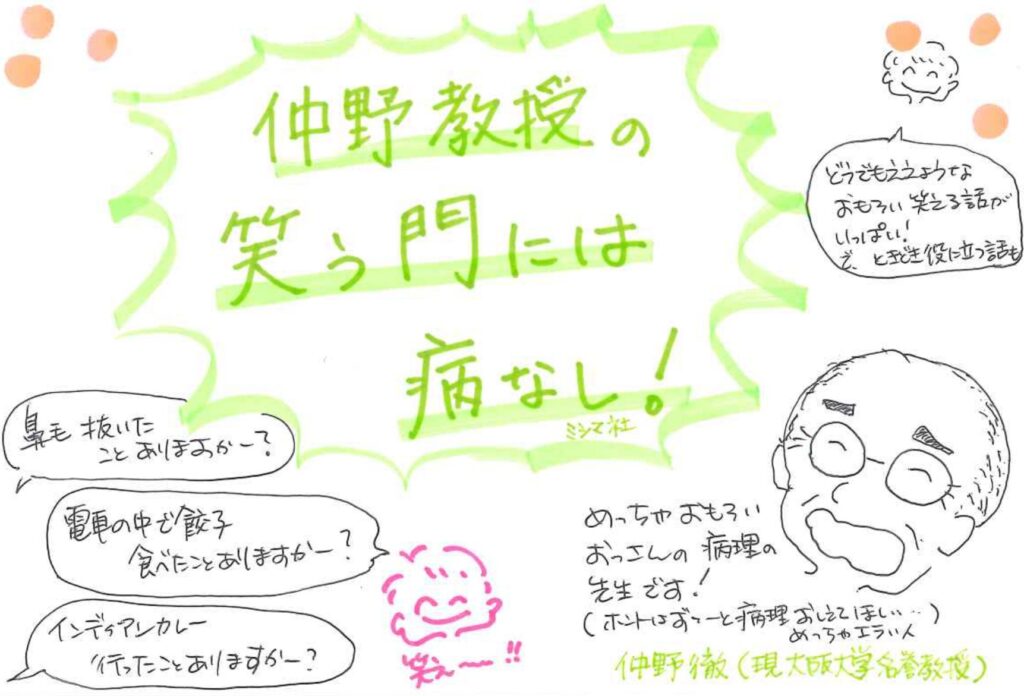 仲野教授の
笑う門には
病なし!
ミシマ社
どうでもええような
おもろい笑える話が
いっぱい!
で、ときどき役に立つ話も
鼻毛 抜いた
ことありますかー?
電車の中で餃子
食べたことありますかー?
インディアンカレー
行ったことありますかー?
笑え〜!!
めっちゃおもろい
おっさんの病理の
先生です!
(ホントはずーっと病理おしえてほしい…)
めっちゃエラい人
仲野徹(現大阪大学名誉教授)